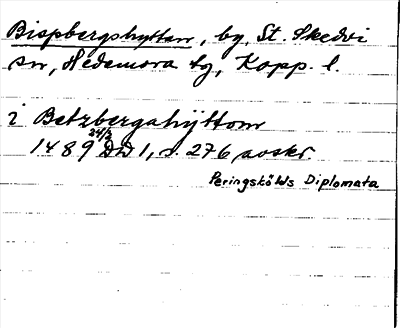 Bispbergshyttan, by, St. Skedvi
sn, Hedemora tg, Kopp. l.
i Betzbergahÿttom
1489 24/3 DD 1, s. 276 avskr.
Peringskölds Diplomata